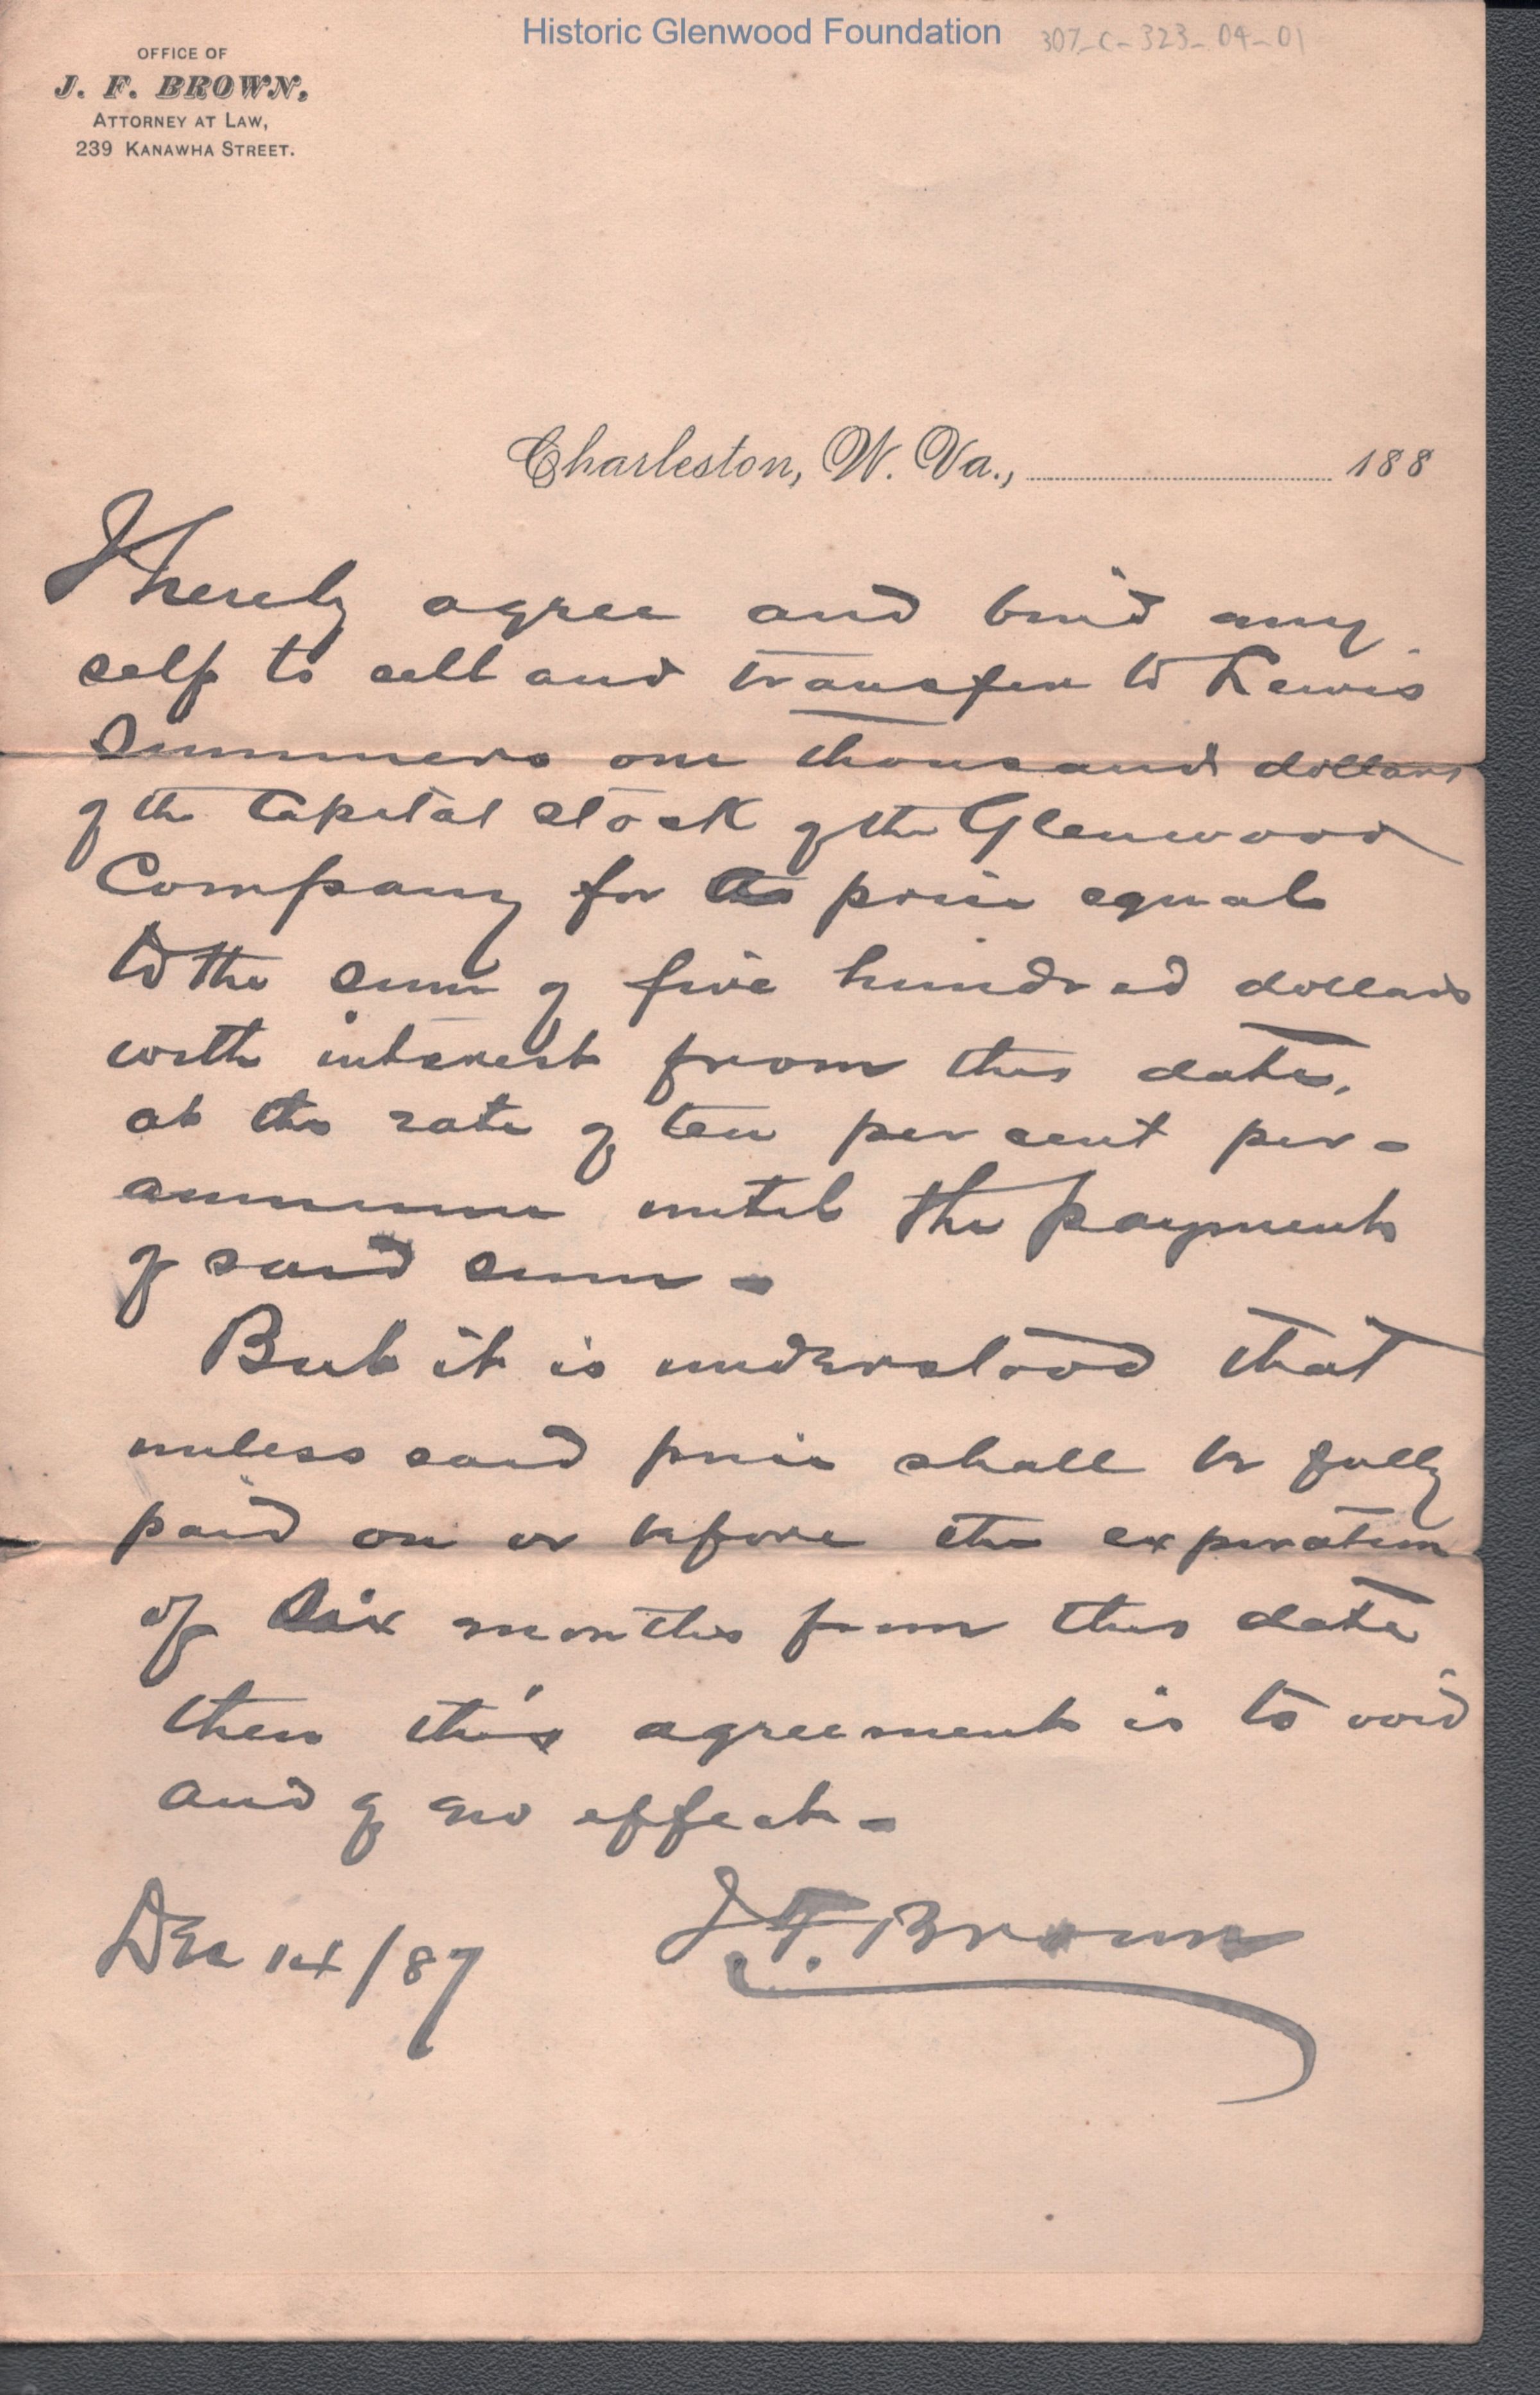 Historic Glenwood Foundation 307-C-323-04-01
OFFICE OF
J. F. BROWN,
ATTORNEY AT LAW,
239 KANAWHA STREET.
Charleston, W. Va., 188
I hereby agree and bind my
self to sell and transfer to Lewis
Summers one thousand dollars
of the Capital stock of the Glenwood
Company for a price equal
to the sum of five hundred dollars
with interest from this date,
at the rate of ten per cent per-
annum until the payment
of said sum -
But it is understood that
unless said price shall be fully
paid on or before the expiration
of six months from this date
then this agreement is to void
and of no effect -
Dec 14/87 J. F. Brown